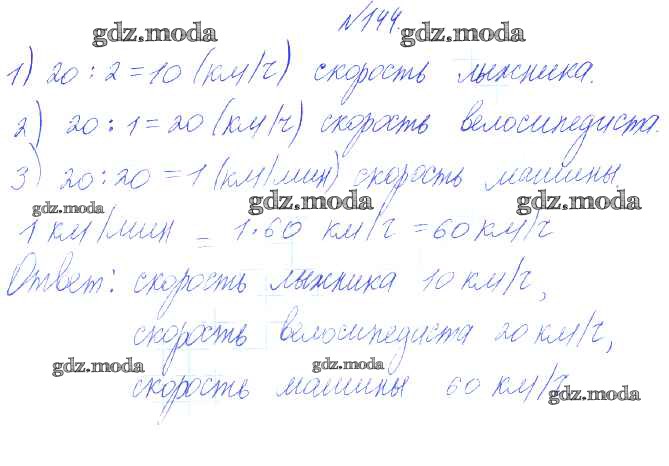 №144.
gdz.moda gdz.moda
1) 20 : 2 = 10 (км/ч) скорость лыжника.
2) 20 : 1 = 20 (км/ч) скорость велосипедиста.
3) 20 : 20 = 1 (км/мин) скорость машины.
gdz.moda gdz.moda gdz.moda
1 км/мин = 1·60 км/ч = 60 км/ч
Ответ: скорость лыжника 10 км/ч,
скорость велосипедиста 20 км/ч,
gdz.moda gdz.moda
скорость машины 60 км/ч
gdz.moda